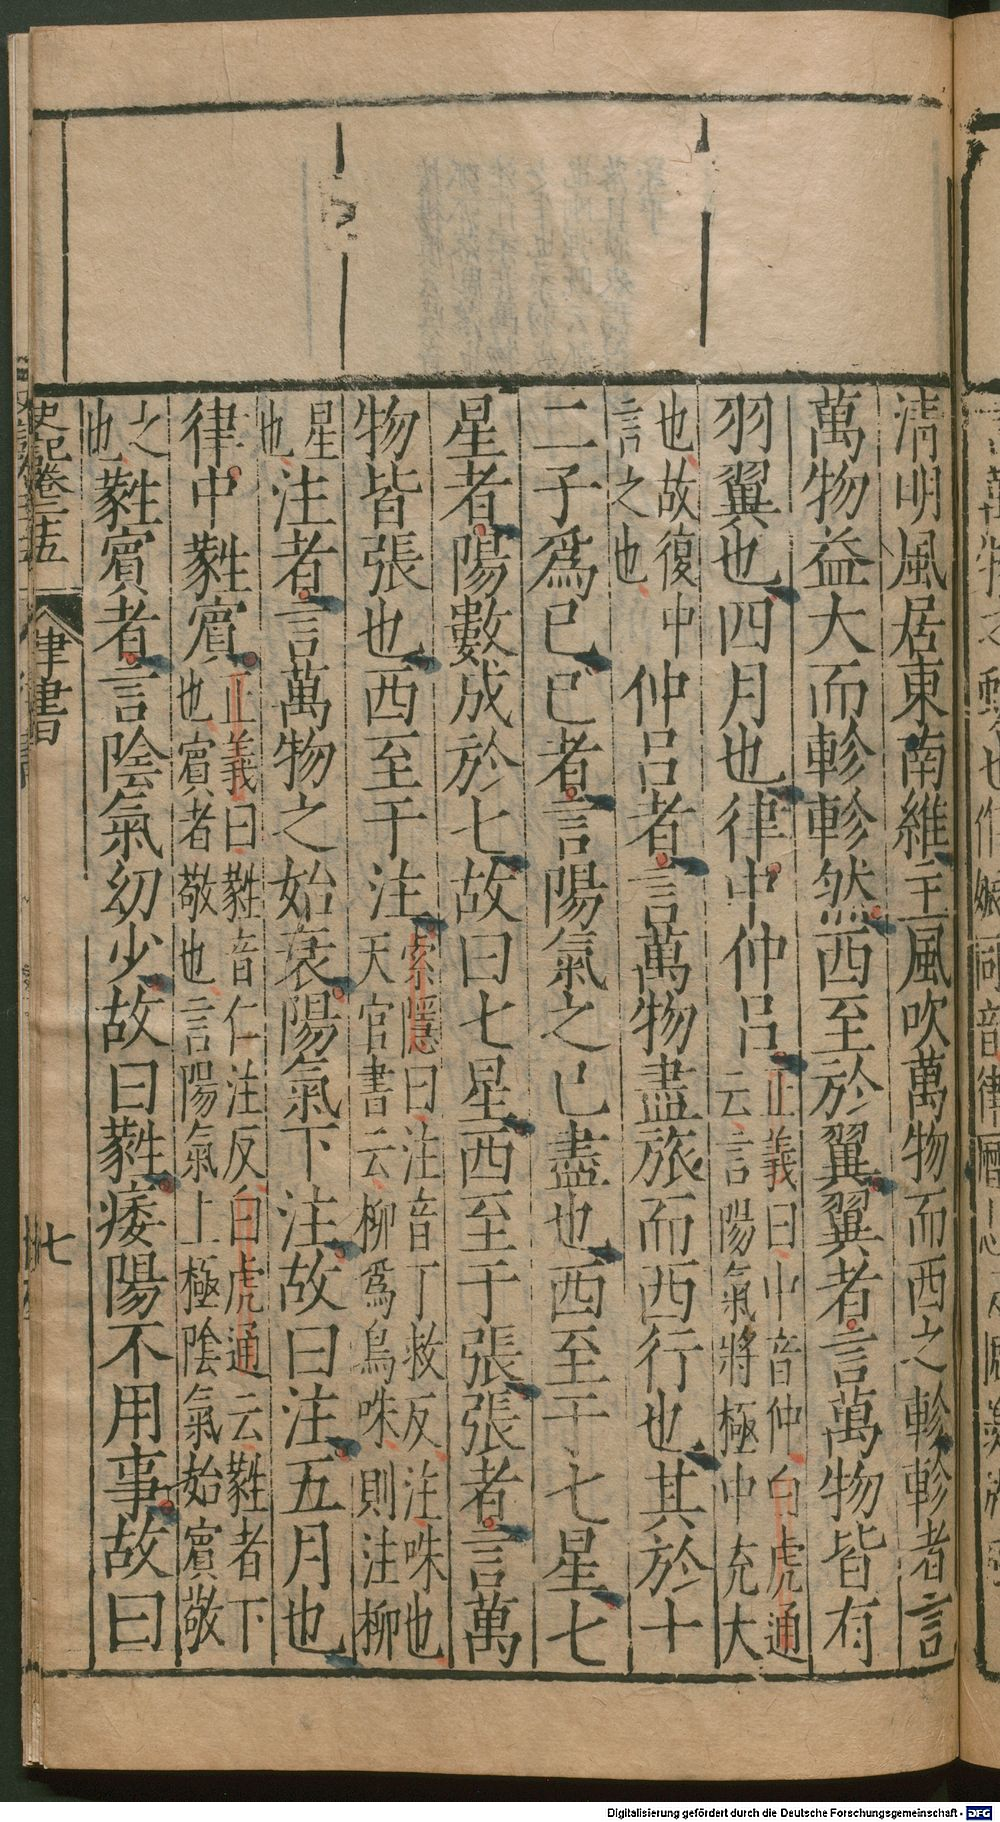 清明風居東南維主風吹萬物而西之軫軫者言
萬物益大而軫軫然西至於翼翼者言萬物皆有
羽翼也四月也律中仲呂正義曰中音仲白虎通
云言陽氣將極中充大
也故復中
言之也仲呂者言萬物盡旅而西行也其於十
二子爲巳巳者言陽氣之已盡也西至于七星七
星者陽數成於七故曰七星西至于張張者言萬
物皆張也西至于注索隱曰注音丁救反注咮也
天官書云柳爲鳥咮則注柳
星
也注者言萬物之始衰陽氣下注故曰注五月也
律中蕤賓正義曰蕤音仁注反白虎通云蕤者下
也賓者敬也言陽氣上極陰氣始賓敬
之
也蕤賓者言陰氣幼少故曰蕤痿陽不用事故曰
史記卷二十五 律書 七
Digitalisierung gefördert durch die Deutsche Forschungsgemeinschaft - DFG